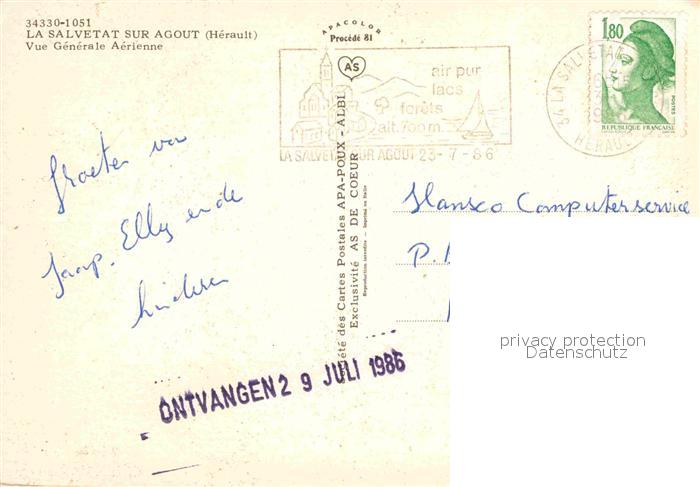 34330-1051
LA SALVETAT SUR AGOUT (Hérault)
Vue Générale Aérienne
APACOLOR
Procédé 81
AS
air pur
lacs
forêts
alt. 700 m.
LA SALVETAT SUR AGOUT 23-7-86
34 LA SALVETAT
HERAULT
1,80
POSTES
REPUBLIQUE FRANÇAISE
Société des Cartes Postales APA-POUX - ALBI
Exclusivité AS DE COEUR
Reproduction interdite - Imprimé en Italie
Groeten van
Jaap. Elly en de
kinderen
Hansco Computerservice
P.
ONTVANGEN 29 JULI 1986
privacy protection
Datenschutz